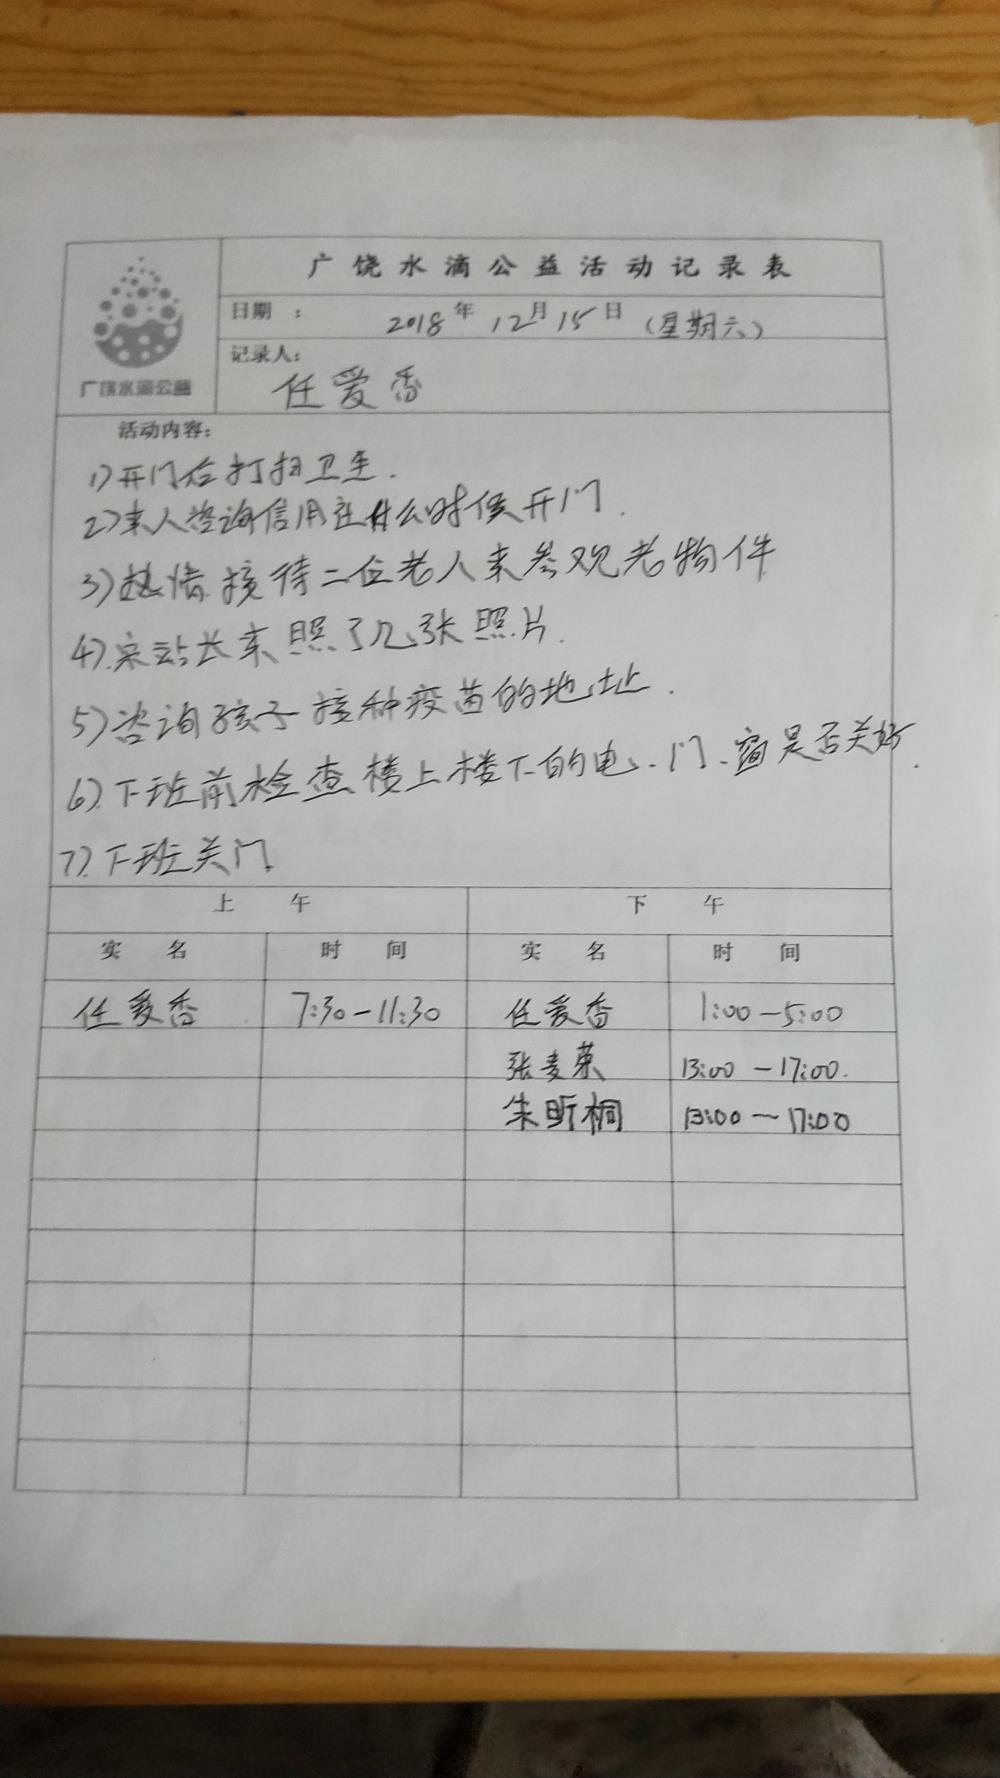 广饶水滴公益活动记录表
日期 : 2018年12月15日 (星期六)
广饶水滴公益
记录人: 任爱香
活动内容:
1)开门后打扫卫生.
2)来人咨询信用社什么时候开门.
3)热情接待二位老人来参观老物件
4).宋站长来照了几张照片.
5)咨询孩子接种疫苗的地址.
6).下班前检查楼上楼下的电、门、窗是否关好.
7).下班关门
上 午 下 午
实 名 时 间 实 名 时 间
任爱香 7:30-11:30 任爱香 1:00-5:00
张麦荣 13:00-17:00.
朱昕桐 13:00-17:00